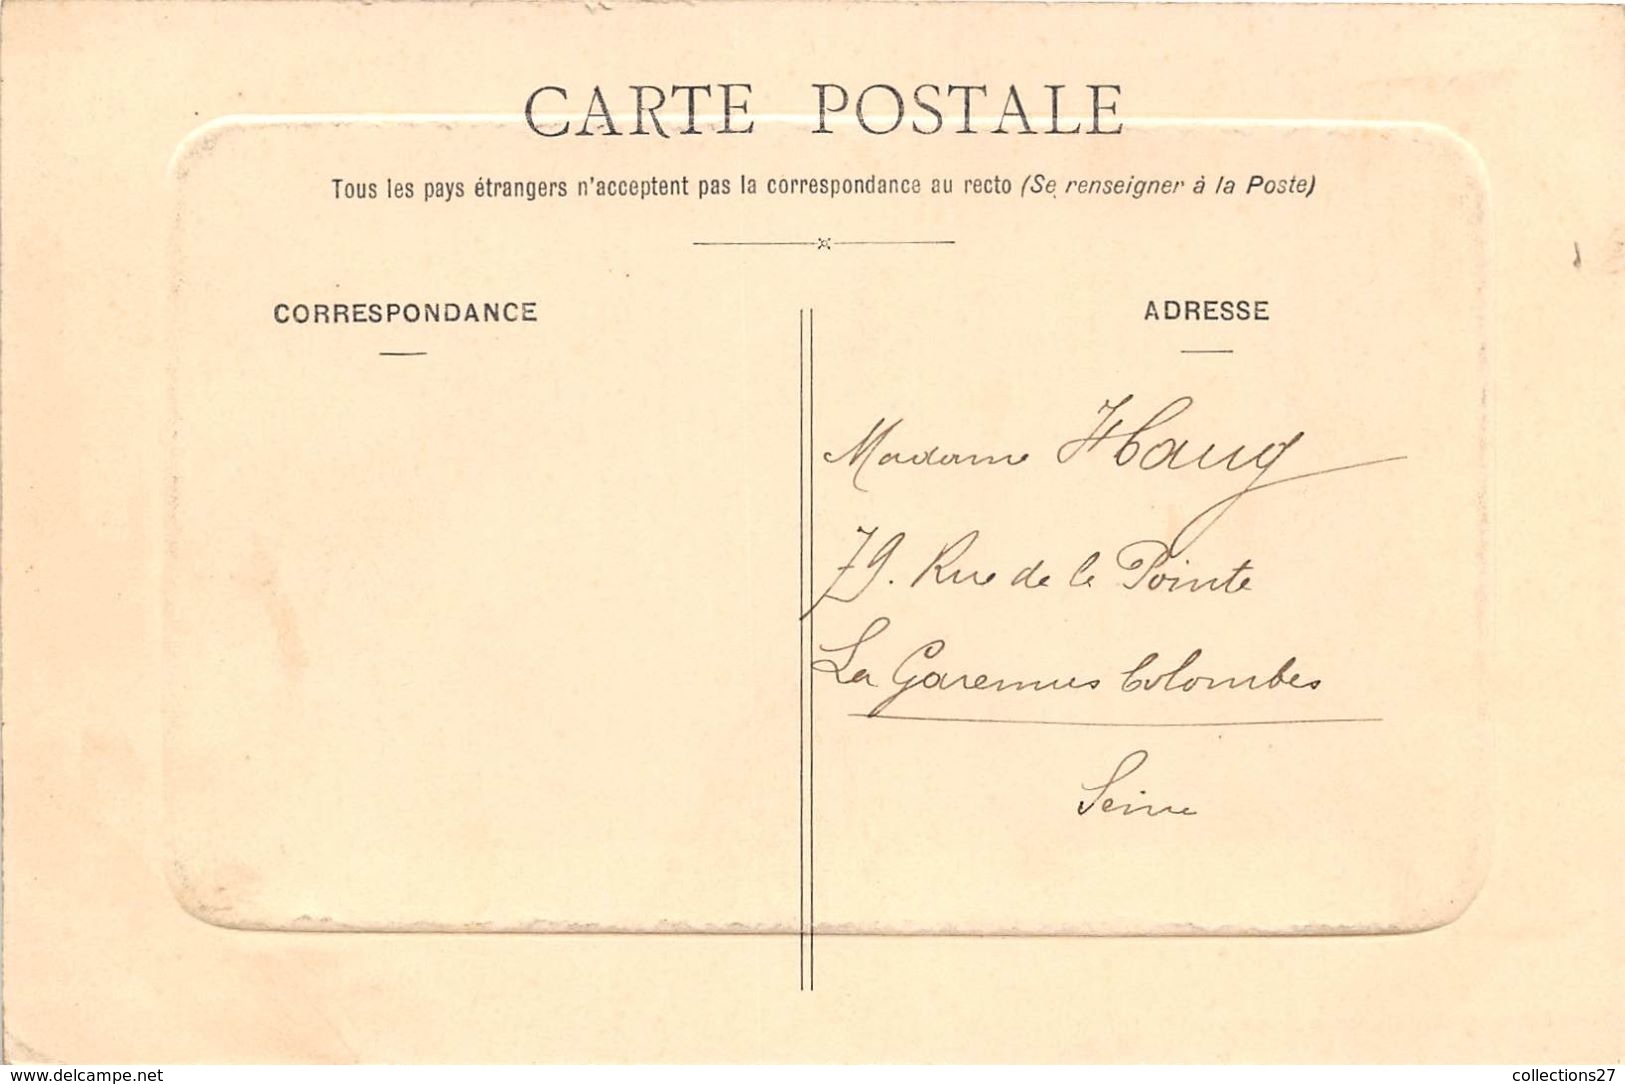 CARTE POSTALE
Tous les pays étrangers n'acceptent pas la correspondance au recto (Se renseigner à la Poste)
CORRESPONDANCE
ADRESSE
Madame Haug
79. Rue de la Pointe
La Garennes Colombes
Seine
www.delcampe.net
collections27